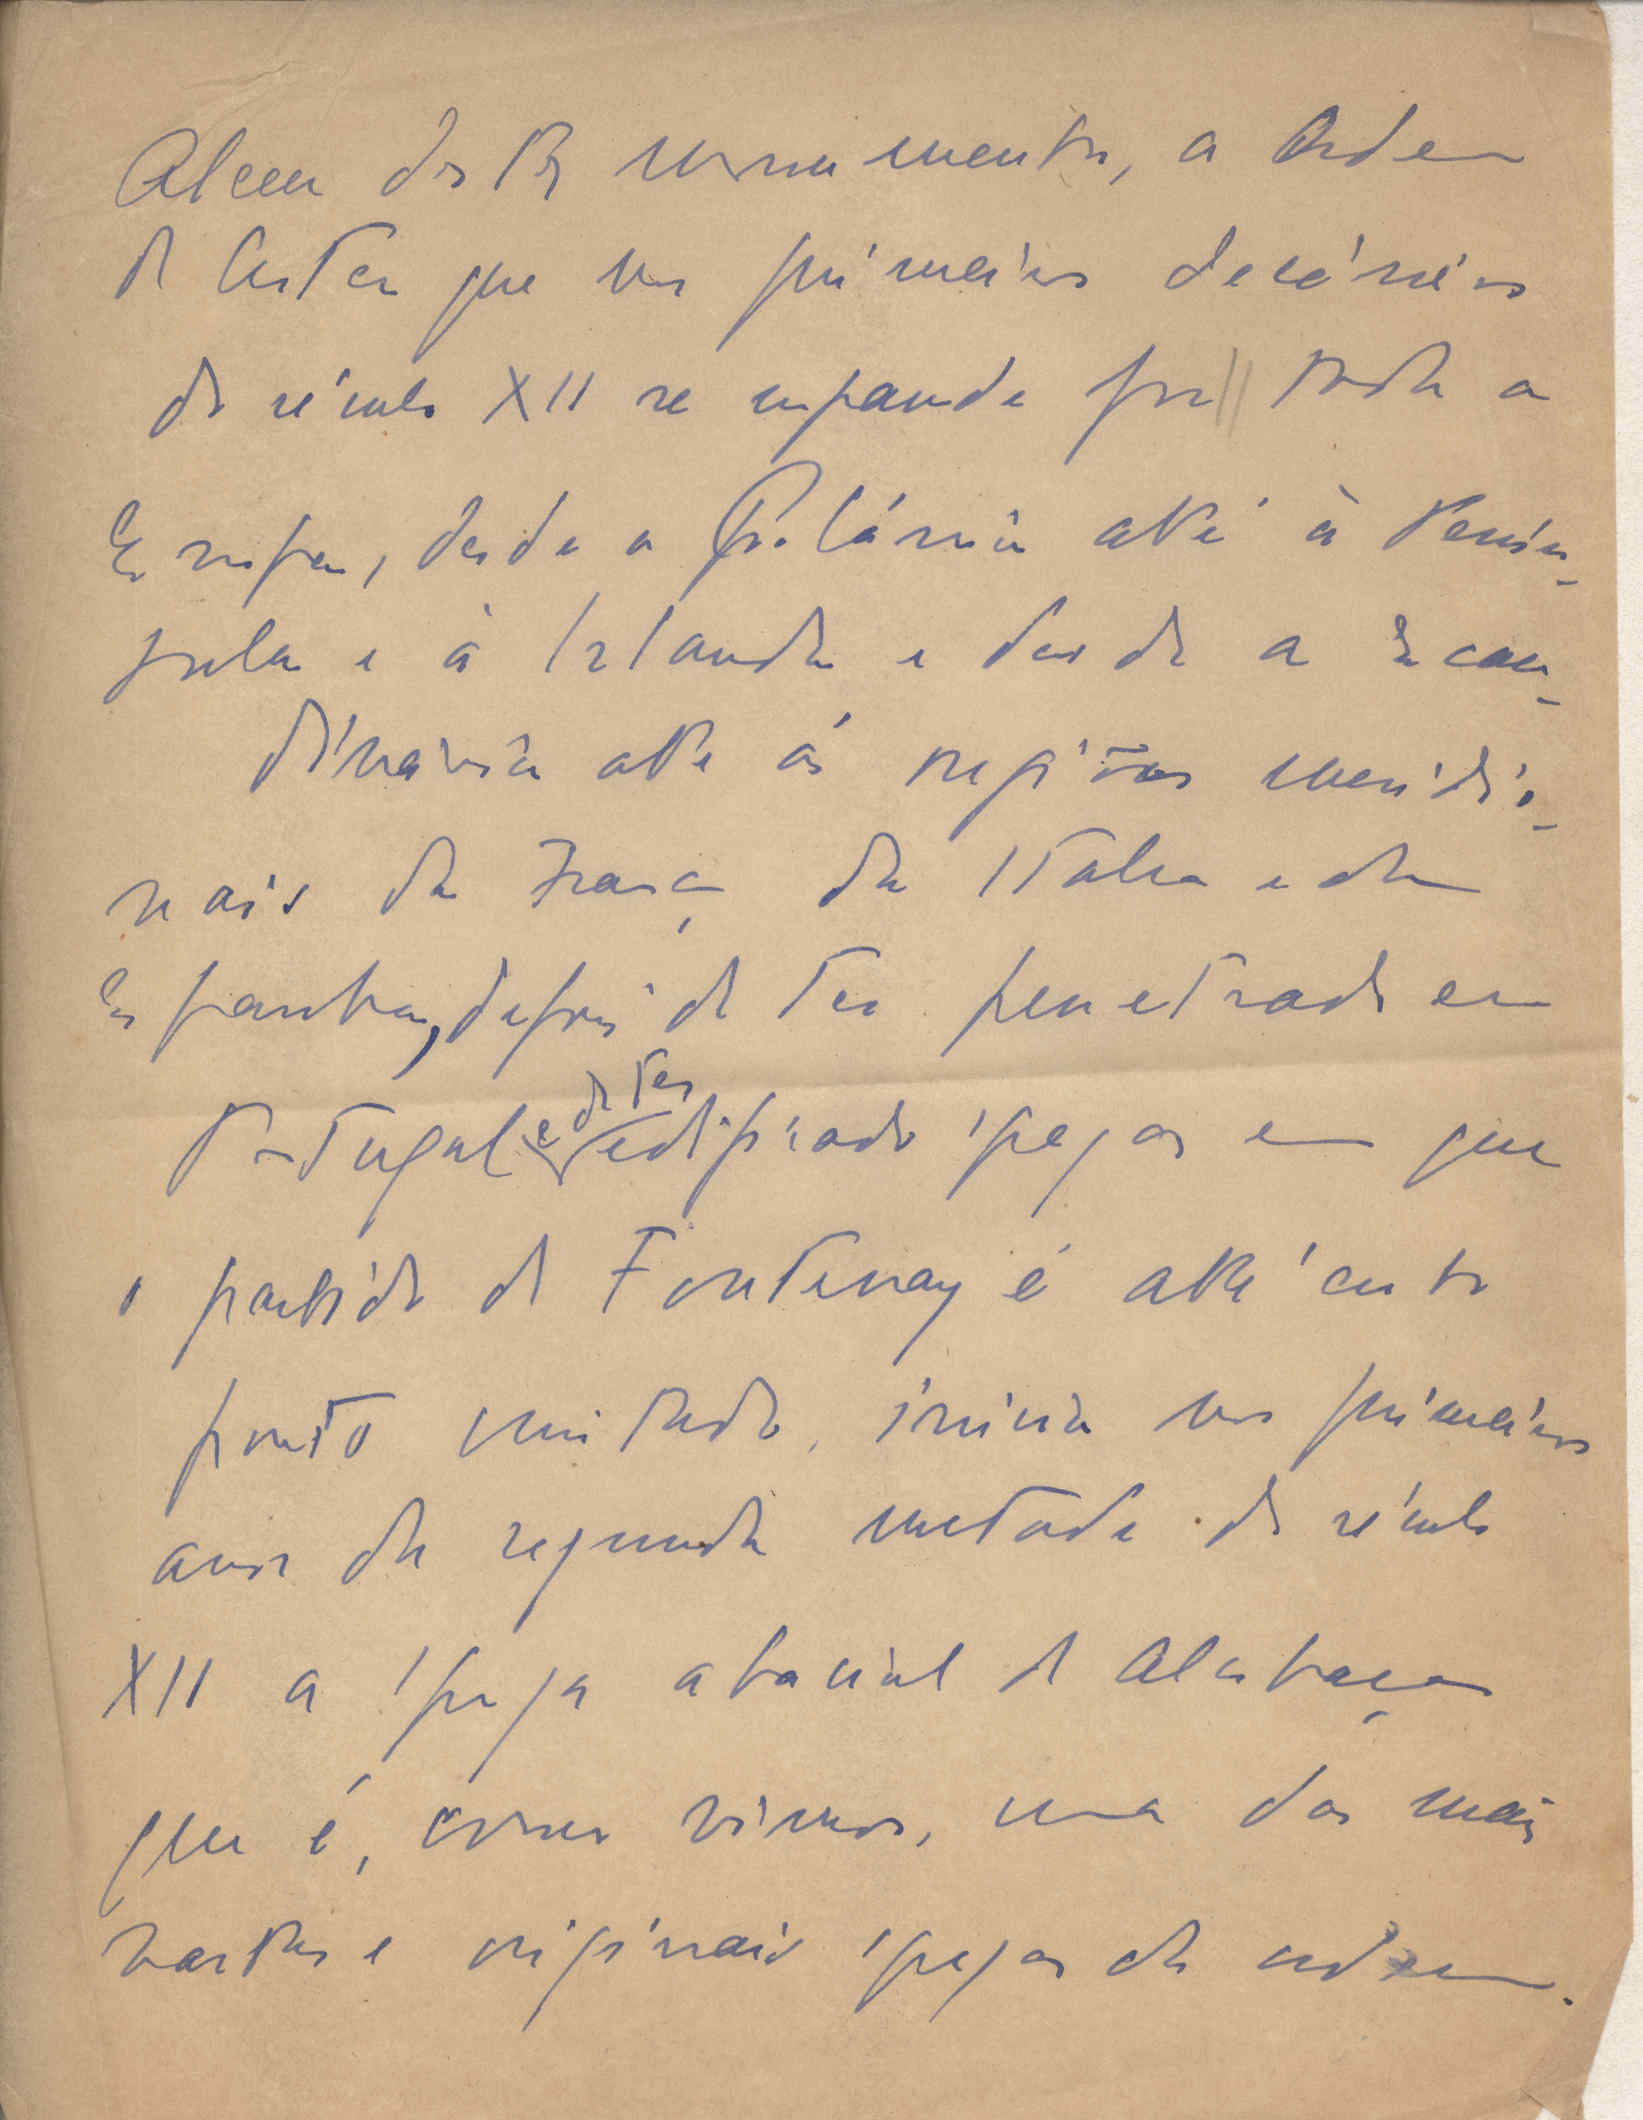 Alem destes monumentos, a Ordem
de Cister que nos primeiros decénios
do século XII se expande por toda a
Europa, desde a Polónia até à Penín-
sula e à Irlanda e desde a Escan-
dinávia até ás regiões meridio-
nais da França da Italia e da
Espanha, depois de ter penetrado em
Portugal e de ter edificado igrejas em que
o partido de Fontenay é até certo
ponto imitado, inicia nos primeiros
anos da segunda metade do século
XII a igreja abacial de Alcobaça
que é, como vimos, uma das mais
vastas e originais igrejas da ordem.